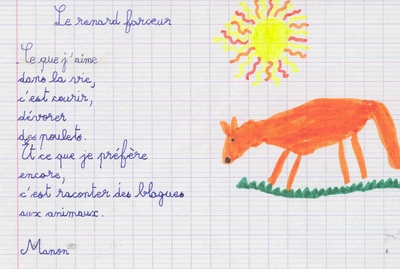 Le renard farceur
Ce que j'aime
dans la vie,
c'est courir,
dévorer
des poulets.
Et ce que je préfère
encore,
c'est raconter des blagues
aux animaux.
Manon